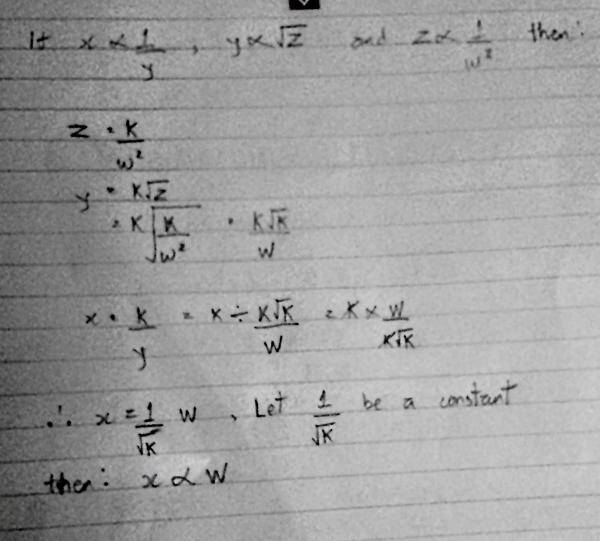 If x ∝ 1/y , y ∝ √z and z ∝ 1/w² then:
z = K/w²
y = K√z
= K√(K/w²) = K√K/W
x = K/y = K ÷ K√K/W = K × W/K√K
∴ x = 1/√K W , Let 1/√K be a constant
then: x ∝ W